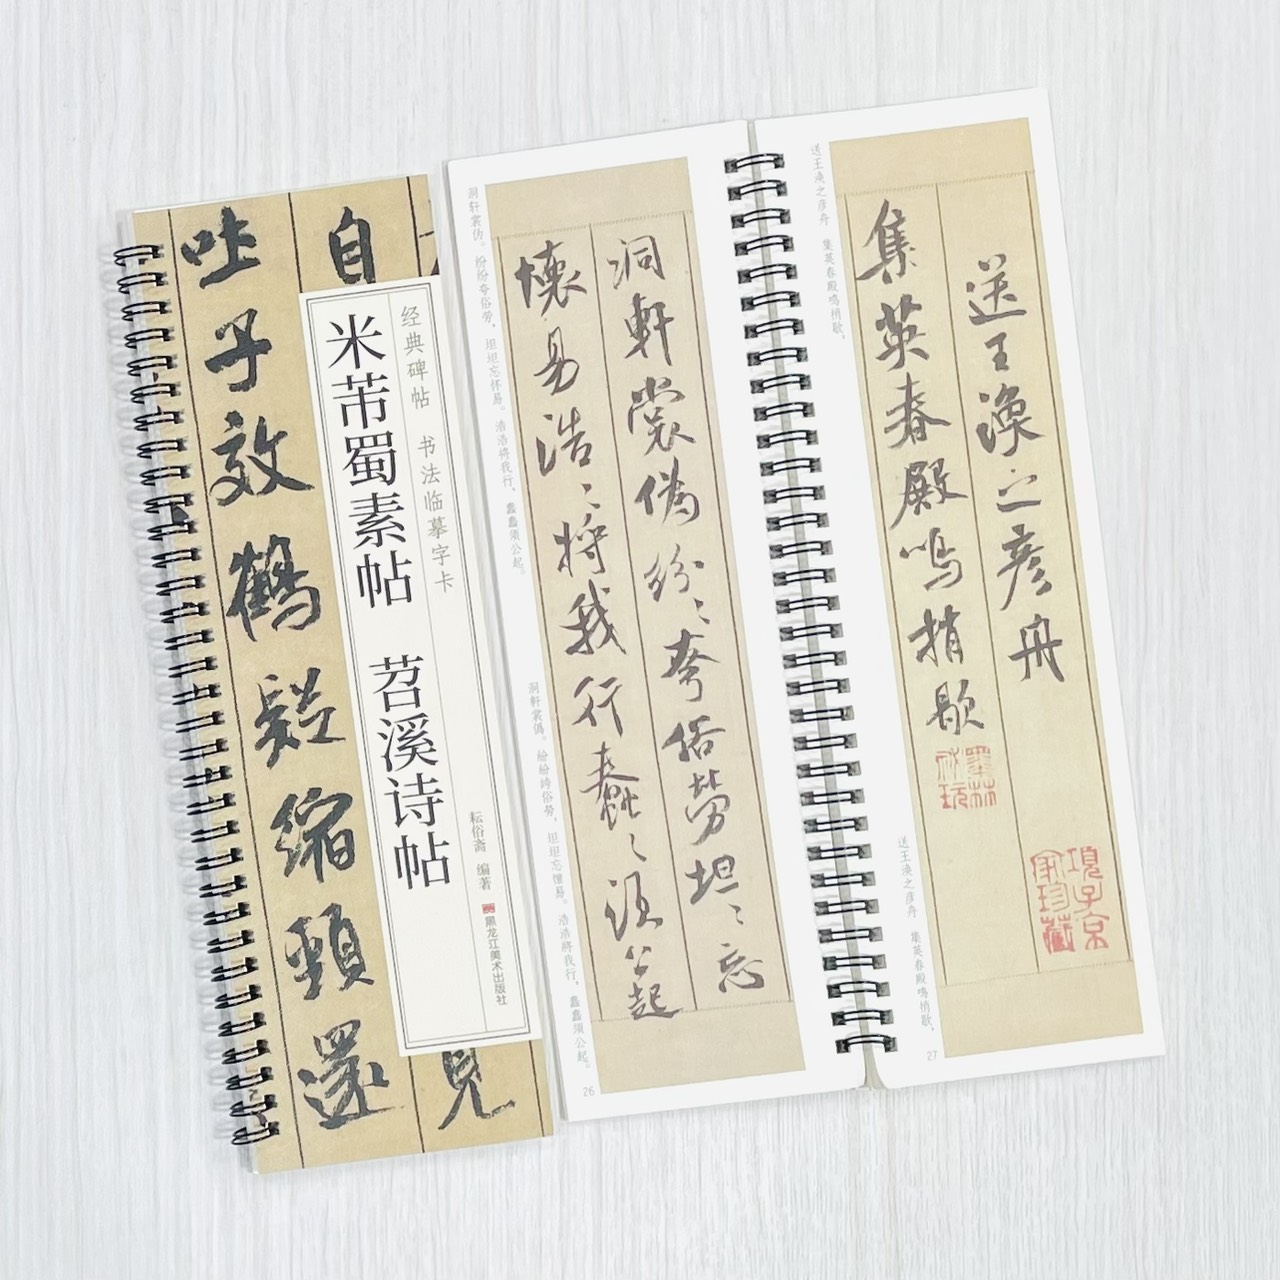 自
吐子效鶴疑縮頸還
見
经典碑帖 书法临摹字卡
米芾蜀素帖 苕溪诗帖
耘俗斋 编著
黑龙江美术出版社
洞軒裳偽紛〻夸俗勞坦〻忘
懷易浩〻将我行蠢〻須公起
洞轩裳伪。纷纷夸俗劳，坦坦忘怀易。浩浩将我行，蠢蠢须公起。
洞軒裳偽。紛紛誇俗勞，坦坦忘懷易。浩浩將我行，蠢蠢須公起。
26
送王渙之彦舟
集英春殿鳴捎歇
墨林
祕玩
項子京
家珍藏
送王涣之彦舟 集英春殿鸣梢歇，
送王渙之彦舟 集英春殿鳴梢歇，
27